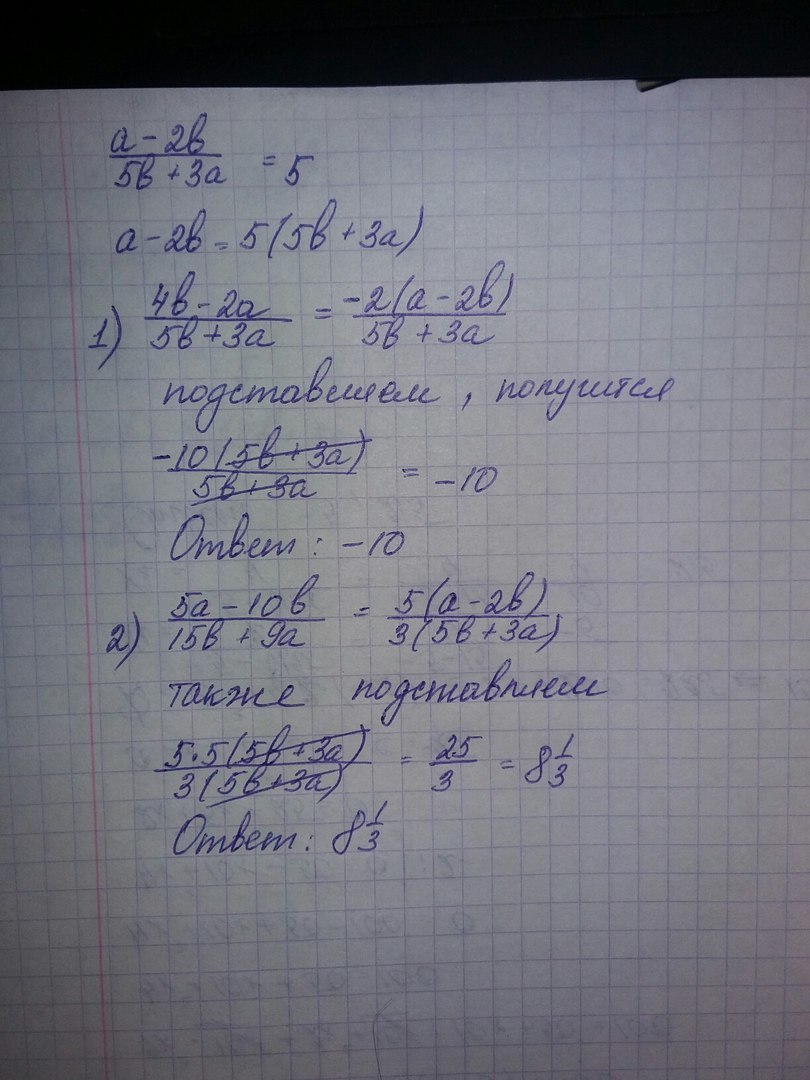 а - 2в / 5в + 3а = 5
а - 2в = 5(5в + 3а)
1) 4в - 2а / 5в + 3а = -2(а - 2в) / 5в + 3а
подставляем, получится
-10(5в + 3а) / 5в + 3а = -10
Ответ: -10
2) 5а - 10в / 15в + 9а = 5(а - 2в) / 3(5в + 3а)
также подставляем
5·5(5в + 3а) / 3(5в + 3а) = 25/3 = 8 1/3
Ответ: 8 1/3